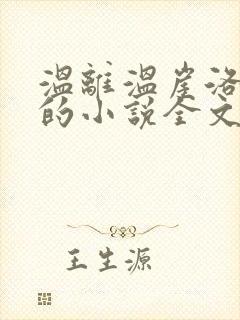 溫離溫崖洛
的小說全文
王生源